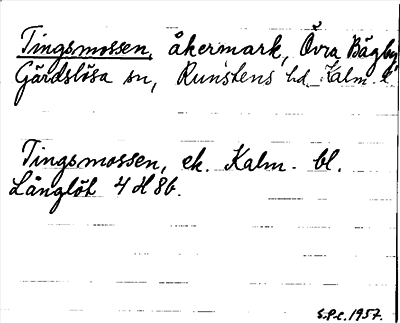 Tingsmossen, åkermark, Övra Bägby
Gärdslösa sn, Runstens hd. Kalm. l.
Tingsmossen, ek. Kalm. bl.
Långlöt 4 H 8b.
S.P.c. 1957.